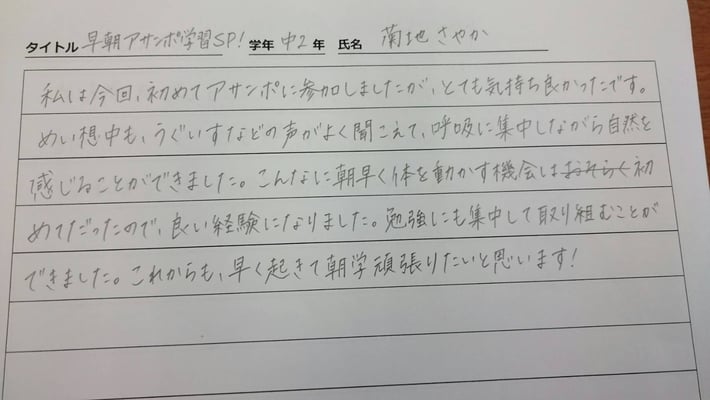 タイトル 早朝アサンポ学習SP! 学年 中2年 氏名 菊地 さやか
私は今回、初めてアサンポに参加しましたが、とても気持ち良かったです。
めい想中も、うぐいすなどの声がよく聞こえて、呼吸に集中しながら自然を
感じることができました。こんなに朝早く体を動かす機会はおそらく初
めてだったので、良い経験になりました。勉強にも集中して取り組むことが
できました。これからも、早く起きて朝学頑張りたいと思います!